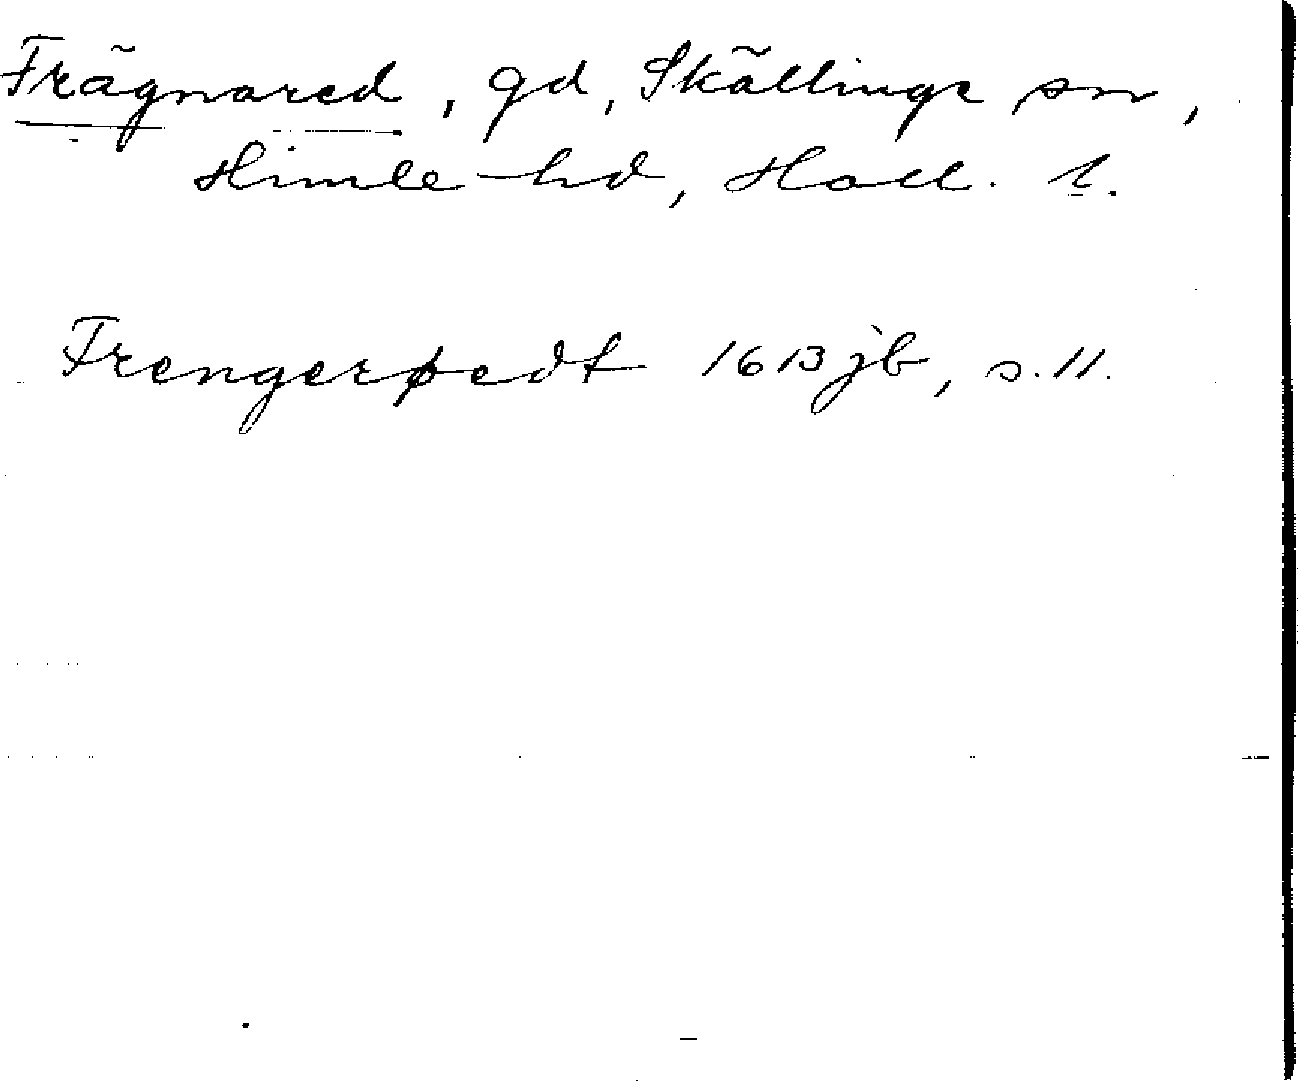 Frägnared, gd, Skällinge sn,
Himle hd, Hall. l.
Frengerødt 1613 jb, s. 11.